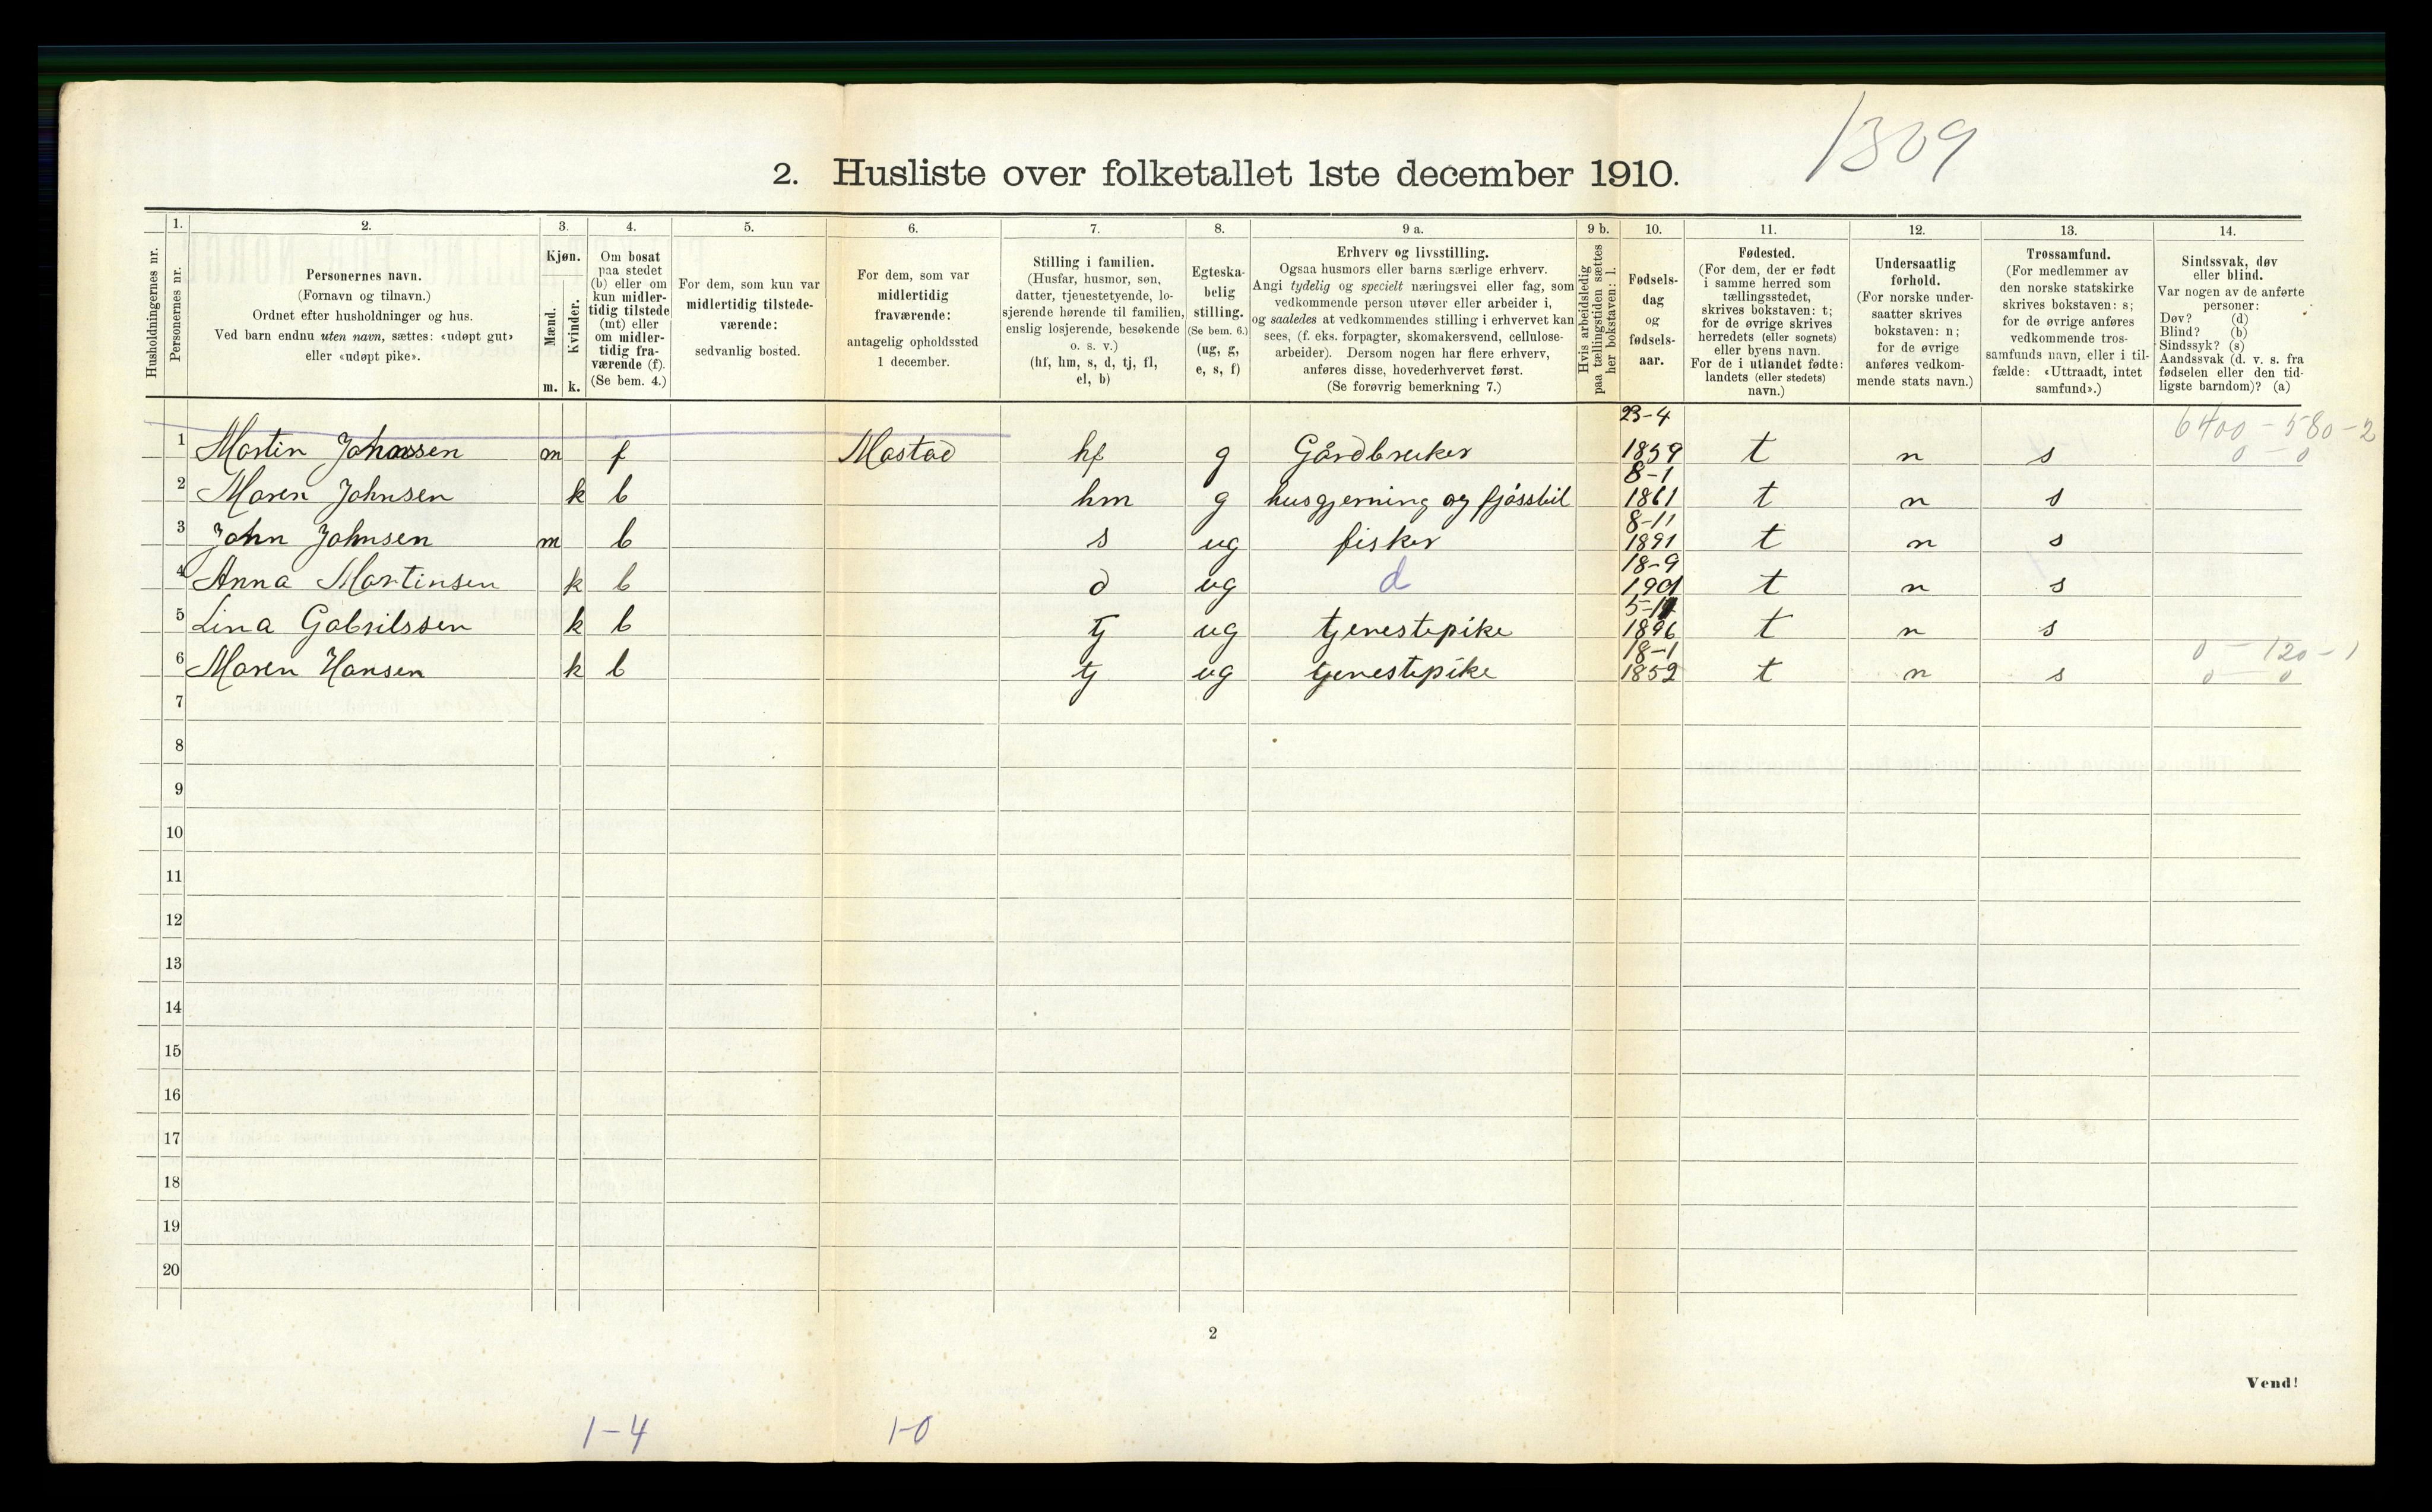 1309
2. Husliste over folketallet 1ste december 1910.
Husholdningernes nr.
1. Personernes nr.
2. Personernes navn.
(Fornavn og tilnavn.)
Ordnet efter husholdninger og hus.
Ved barn endnu uten navn, sættes: «udøpt gut»
eller «udøpt pike».
3. Kjøn.
Mænd. m.
Kvinder. k.
4. Om bosat
paa stedet
(b) eller om
kun midler-
tidig tilstede
(mt) eller
om midler-
tidig fra-
værende (f).
(Se bem. 4.)
5. For dem, som kun var
midlertidig tilstede-
værende:
sedvanlig bosted.
6. For dem, som var
midlertidig
fraværende:
antagelig opholdssted
1 december.
7. Stilling i familien.
(Husfar, husmor, søn,
datter, tjenestetyende, lo-
sjerende hørende til familien,
enslig losjerende, besøkende
o. s. v.)
(hf, hm, s, d, tj, fl,
el, b)
8. Egteska-
belig
stilling.
(Se bem. 6.)
(ug, g,
e, s, f)
9 a. Erhverv og livsstilling.
Ogsaa husmors eller barns særlige erhverv.
Angi tydelig og specielt næringsvei eller fag, som
vedkommende person utøver eller arbeider i,
og saaledes at vedkommendes stilling i erhvervet kan
sees, (f. eks. forpagter, skomakersvend, cellulose-
arbeider). Dersom nogen har flere erhverv,
anføres disse, hovederhvervet først.
(Se forøvrig bemerkning 7.)
9 b. Hvis arbeidsledig
paa tællingstiden sættes
her bokstaven: l.
10. Fødsels-
dag
og
fødsels-
aar.
11. Fødested.
(For dem, der er født
i samme herred som
tællingsstedet,
skrives bokstaven: t;
for de øvrige skrives
herredets (eller sognets)
eller byens navn.
For de i utlandet fødte:
landets (eller stedets)
navn.)
12. Undersaatlig
forhold.
(For norske under-
saatter skrives
bokstaven: n;
for de øvrige
anføres vedkom-
mende stats navn.)
13. Trossamfund.
(For medlemmer av
den norske statskirke
skrives bokstaven: s;
for de øvrige anføres
vedkommende tros-
samfunds navn, eller i til-
fælde: «Uttraadt, intet
samfund».)
14. Sindssvak, døv
eller blind.
Var nogen av de anførte
personer:
Døv? (d)
Blind? (b)
Sindssyk? (s)
Aandssvak (d. v. s. fra
fødselen eller den tid-
ligste barndom)? (a)
1 Martin Johnsen m f Mastad hf g Gårdbruker 23-4 1859 t n s 6400-580-2 0-0
2 Maren Johnsen k b hm g husgjerning og fjósstel 8-1 1861 t n s
3 John Johnsen m b s ug fisker 8-11 1891 t n s
4 Anna Martinsen k b d ug d 18-9 1901 t n s
5 Lina Gabrilssen k b tj ug tjenestepike 1896 t n s
6 Maren Hansen k b tj ug tjenestepike 18-1 1852 t n s 0-120-1 0-0
7
8
9
10
11
12
13
14
15
16
17
18
19
20
2
Vend!
1-4 1-0